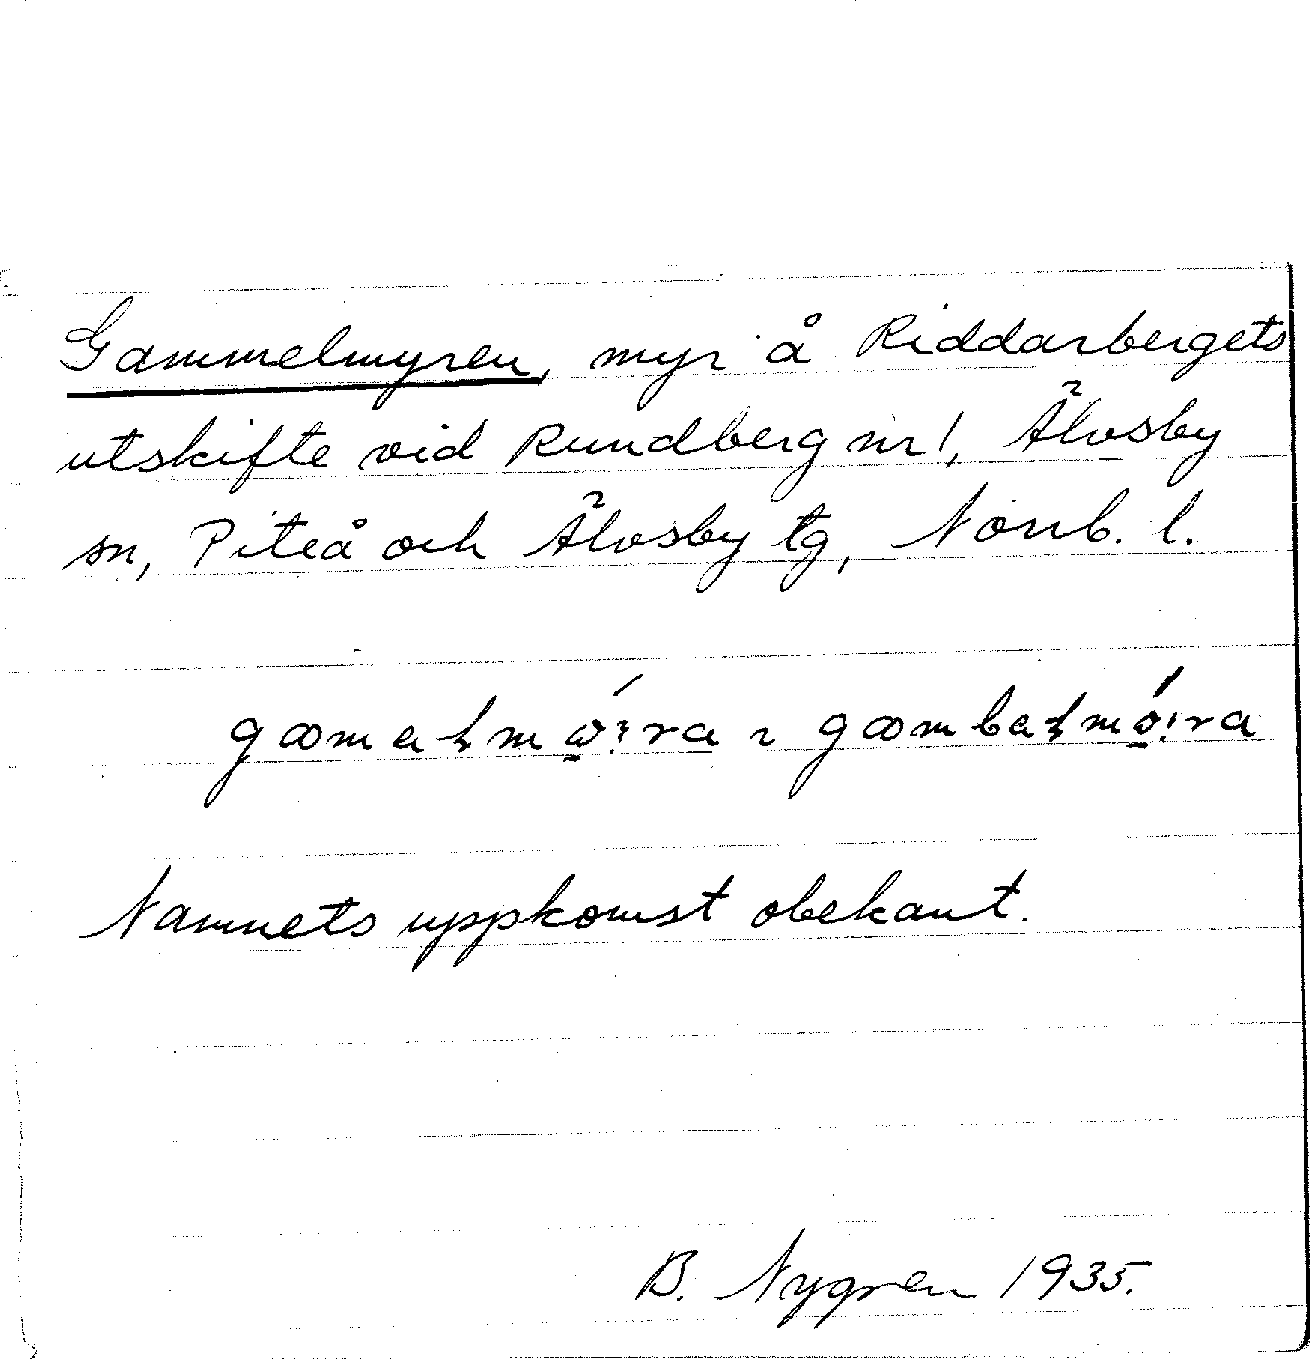 Gammelmyren, myr å Riddarbergets
utskifte vid Rundberg nr 1, Älvsby
sn, Piteå och Älvsby tg, Norrb. l.
Namnets uppkomst obekant.
B. Nygren 1935.